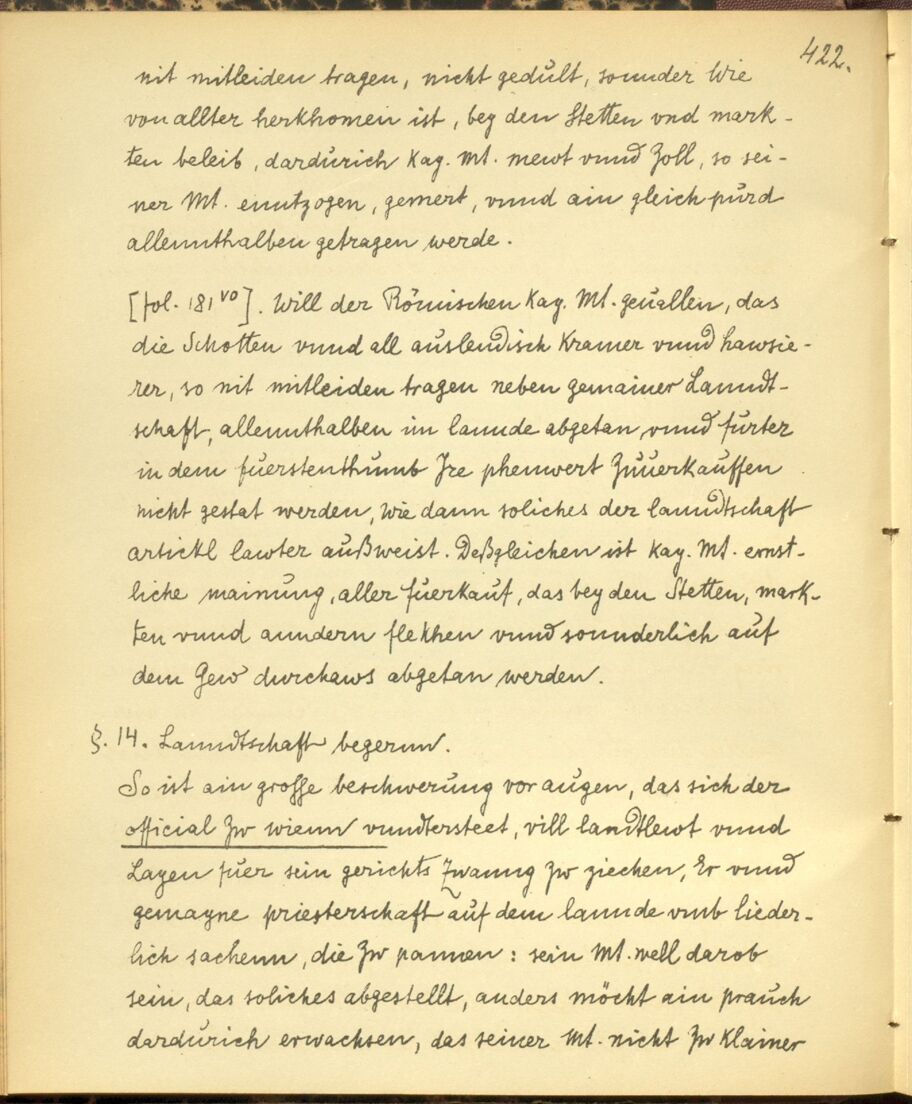 422.
nit mitleiden tragen, nicht gedult, sonnder wie
von allter herkhomen ist, bey den Stetten vnd mark-
ten beleib, dardurich Kay. Mt. mewt vnnd Zoll, so sei-
ner Mt. enntzogen, gemert, vnnd ain gleich purd
allennthalben getragen werde.
[fol. 181 vo]. Will der Römischen Kay. Mt. geuallen, das
die Schotten vnnd all auslendisch Kramer vnnd hawsie-
rer, so nit mitleiden tragen neben gemainer Lanndt-
schaft, allennthalben im lannde abgetan vnnd furter
in dem fuerstenthumb Ire phenwert Zuuerkauffen
nicht gestat werden, wie dann soliches der lanndtschaft
artickl lawter außweist. Deßgleichen ist Kay. Mt. ernst-
liche mainung, aller fuerkauf, das bey den Stetten, mark-
ten vnnd anndern flekhen vnnd sonnderlich auf
dem Gew durchaws abgetan werden.
§. 14. Lanndtschaft begernn.
So ist ain grosse beschwerung vor augen, das sich der
official Zw wienn vnndtersteet, vill landtlewt vnnd
Layen fuer sein gerichts Zwanng Zw ziechen, Er vnnd
gemayne priesterschaft auf dem lannde vmb lieder-
lich sachenn, die Zw pannen: sein Mt. well darob
sein, das soliches abgestellt, anders möcht ain prauch
dardurich erwachsen, das seiner Mt. nicht Zw Klainer